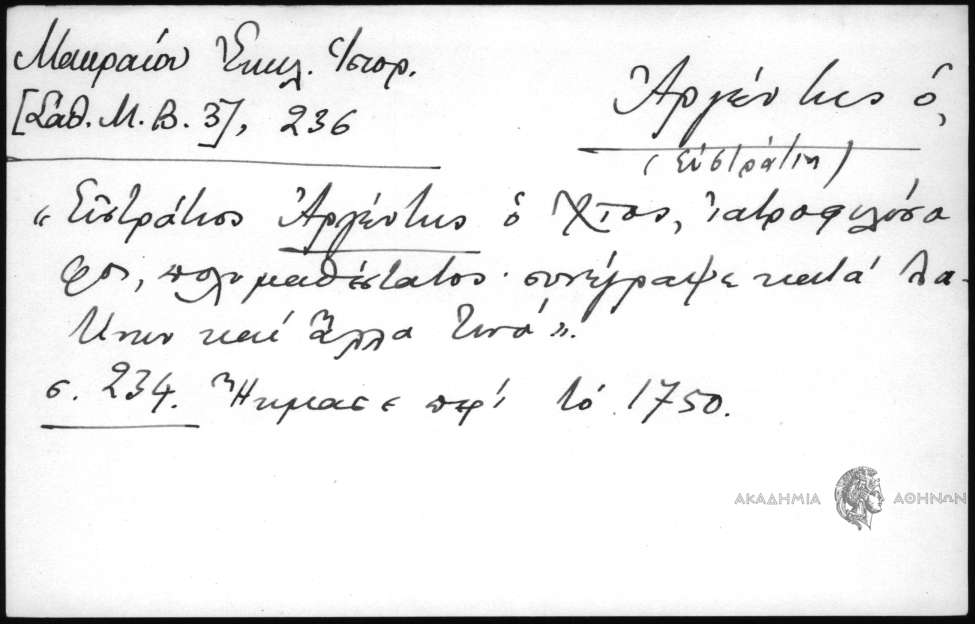 Μακραίου Ἐκκλ. Ἱστορ.
[Σάθ. Μ. Β. 3], 236
Ἀργέντης ὁ,
(Εὐστράτιος)
“Εὐστράτιος Ἀργέντης ὁ Χῖος, ἰατροφιλόσο
φος, πολυμαθέστατος· συνέγραψε κατά λα-
τίνων καί ἄλλα τινά”.
σ. 234. Ἤκμασε περί τό 1750.
ΑΚΑΔΗΜΙΑ ΑΘΗΝΩΝ